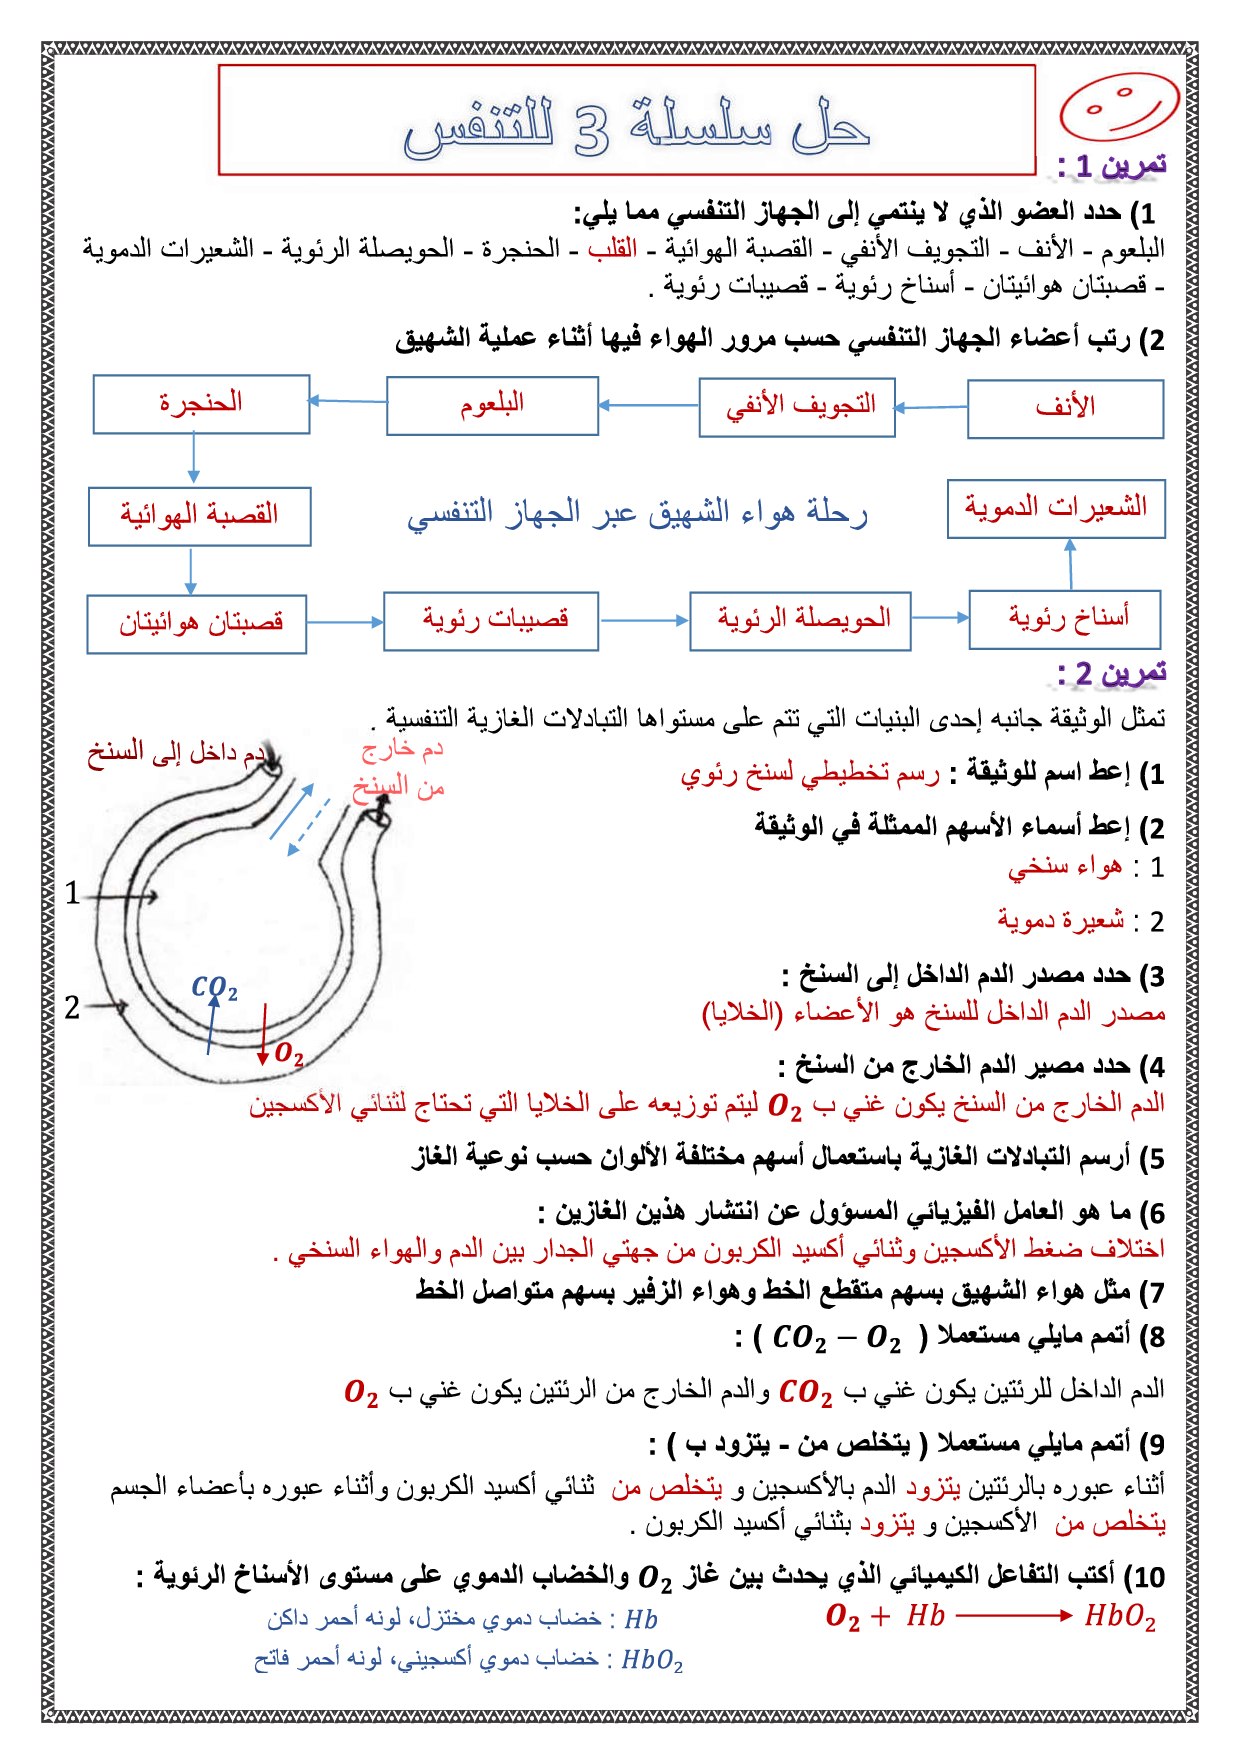 حل سلسلة 3 للتنفس
تمرين 1 :
1) حدد العضو الذي لا ينتمي إلى الجهاز التنفسي مما يلي:
البلعوم - الأنف - التجويف الأنفي - القصبة الهوائية - القلب - الحنجرة - الحويصلة الرئوية - الشعيرات الدموية
- قصبتان هوائيتان - أسناخ رئوية - قصيبات رئوية .
2) رتب أعضاء الجهاز التنفسي حسب مرور الهواء فيها أثناء عملية الشهيق
الأنف
التجويف الأنفي
البلعوم
الحنجرة
القصبة الهوائية
رحلة هواء الشهيق عبر الجهاز التنفسي
الشعيرات الدموية
قصبتان هوائيتان
قصيبات رئوية
الحويصلة الرئوية
أسناخ رئوية
تمرين 2 :
تمثل الوثيقة جانبه إحدى البنيات التي تتم على مستواها التبادلات الغازية التنفسية .
دم داخل إلى السنخ
دم خارج
من السنخ
1
2
CO₂
O₂
1) إعط اسم للوثيقة : رسم تخطيطي لسنخ رئوي
2) إعط أسماء الأسهم الممثلة في الوثيقة
1 : هواء سنخي
2 : شعيرة دموية
3) حدد مصدر الدم الداخل إلى السنخ :
مصدر الدم الداخل للسنخ هو الأعضاء (الخلايا)
4) حدد مصير الدم الخارج من السنخ :
الدم الخارج من السنخ يكون غني ب O₂ ليتم توزيعه على الخلايا التي تحتاج لثنائي الأكسجين
5) أرسم التبادلات الغازية باستعمال أسهم مختلفة الألوان حسب نوعية الغاز
6) ما هو العامل الفيزيائي المسؤول عن انتشار هذين الغازين :
اختلاف ضغط الأكسجين وثنائي أكسيد الكربون من جهتي الجدار بين الدم والهواء السنخي .
7) مثل هواء الشهيق بسهم متقطع الخط وهواء الزفير بسهم متواصل الخط
8) أتمم مايلي مستعملا ( CO₂ – O₂ ) :
الدم الداخل للرئتين يكون غني ب CO₂ والدم الخارج من الرئتين يكون غني ب O₂
9) أتمم مايلي مستعملا ( يتخلص من - يتزود ب ) :
أثناء عبوره بالرئتين يتزود الدم بالأكسجين و يتخلص من ثنائي أكسيد الكربون وأثناء عبوره بأعضاء الجسم
يتخلص من الأكسجين و يتزود بثنائي أكسيد الكربون .
10) أكتب التفاعل الكيميائي الذي يحدث بين غاز O₂ والخضاب الدموي على مستوى الأسناخ الرئوية :
O₂ + Hb ⟶ HbO₂
Hb : خضاب دموي مختزل، لونه أحمر داكن
HbO₂ : خضاب دموي أكسجيني، لونه أحمر فاتح